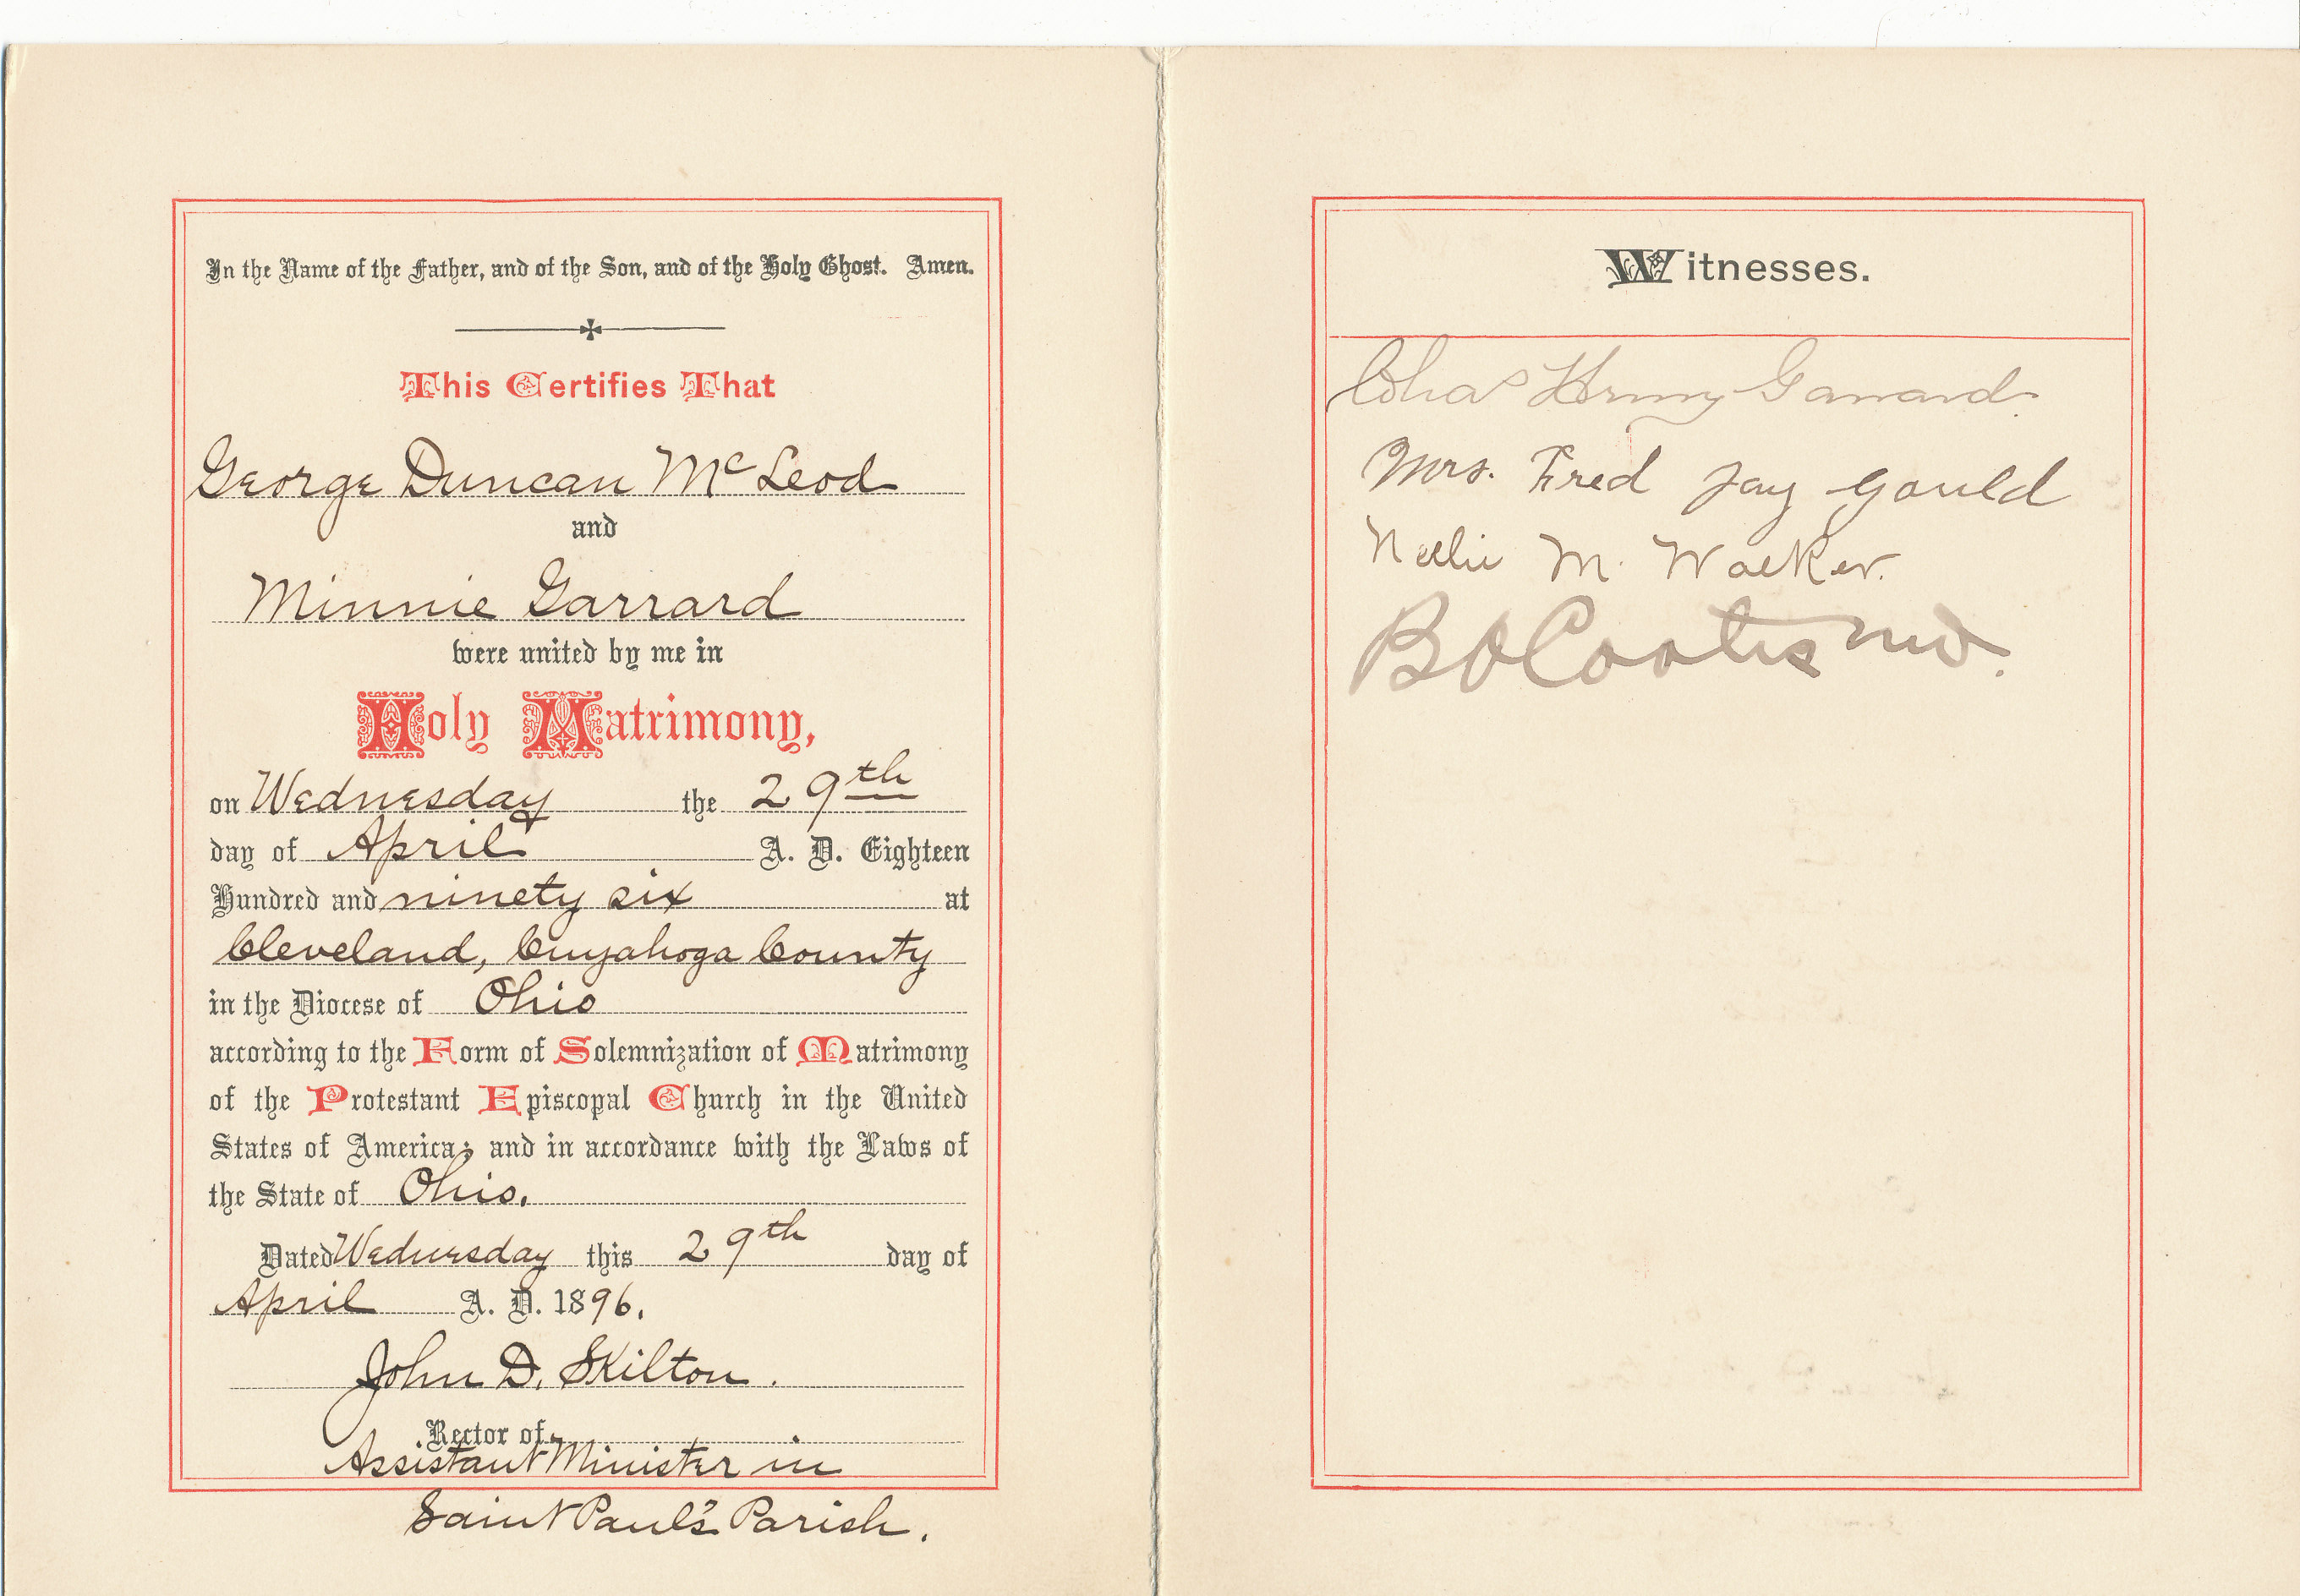 In the Name of the Father, and of the Son, and of the Holy Ghost. Amen.
This Certifies That
George Duncan McLeod
and
Minnie Garrard
were united by me in
Holy Matrimony,
on Wednesday the 29th
day of April A. D. Eighteen
Hundred and ninety six at
Cleveland, Cuyahoga County
in the Diocese of Ohio
according to the Form of Solemnization of Matrimony
of the Protestant Episcopal Church in the United
States of America; and in accordance with the Laws of
the State of Ohio.
Dated Wednesday this 29th day of
April A. D. 1896.
John D. Skilton.
Rector of
Assistant Minister in
Saint Paul's Parish.
Witnesses.
Chas Henry Garrard.
Mrs. Fred Jay Gould
Nellie M. Walker.
B O Coates MD.